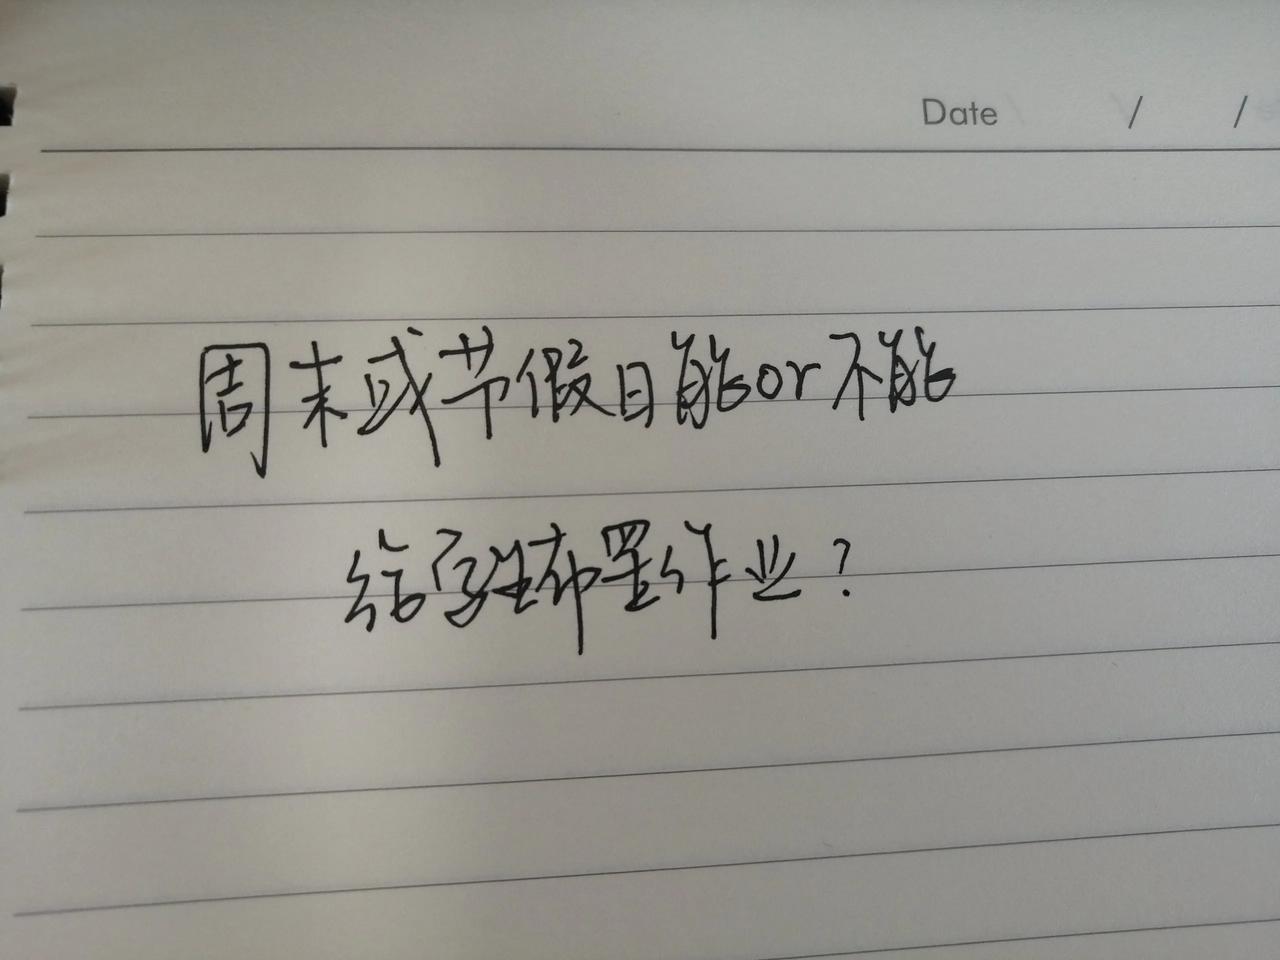 Date / /
周末或节假日能or不能
给学生布置作业？